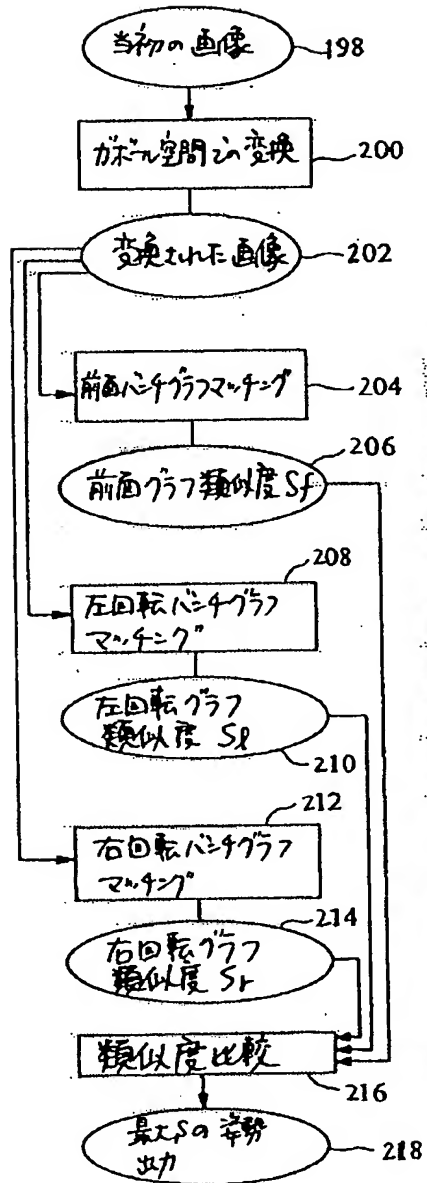 当初の画像
198
ガボール空間での変換
200
変換された画像
202
前面バンチグラフマッチング
204
206
前面グラフ類似度 Sf
208
左回転バンチグラフ
マッチング
左回転グラフ
類似度 Sl
210
212
右回転バンチグラフ
マッチング
214
右回転グラフ
類似度 Sr
類似度比較
216
最大Sの姿勢
出力
218